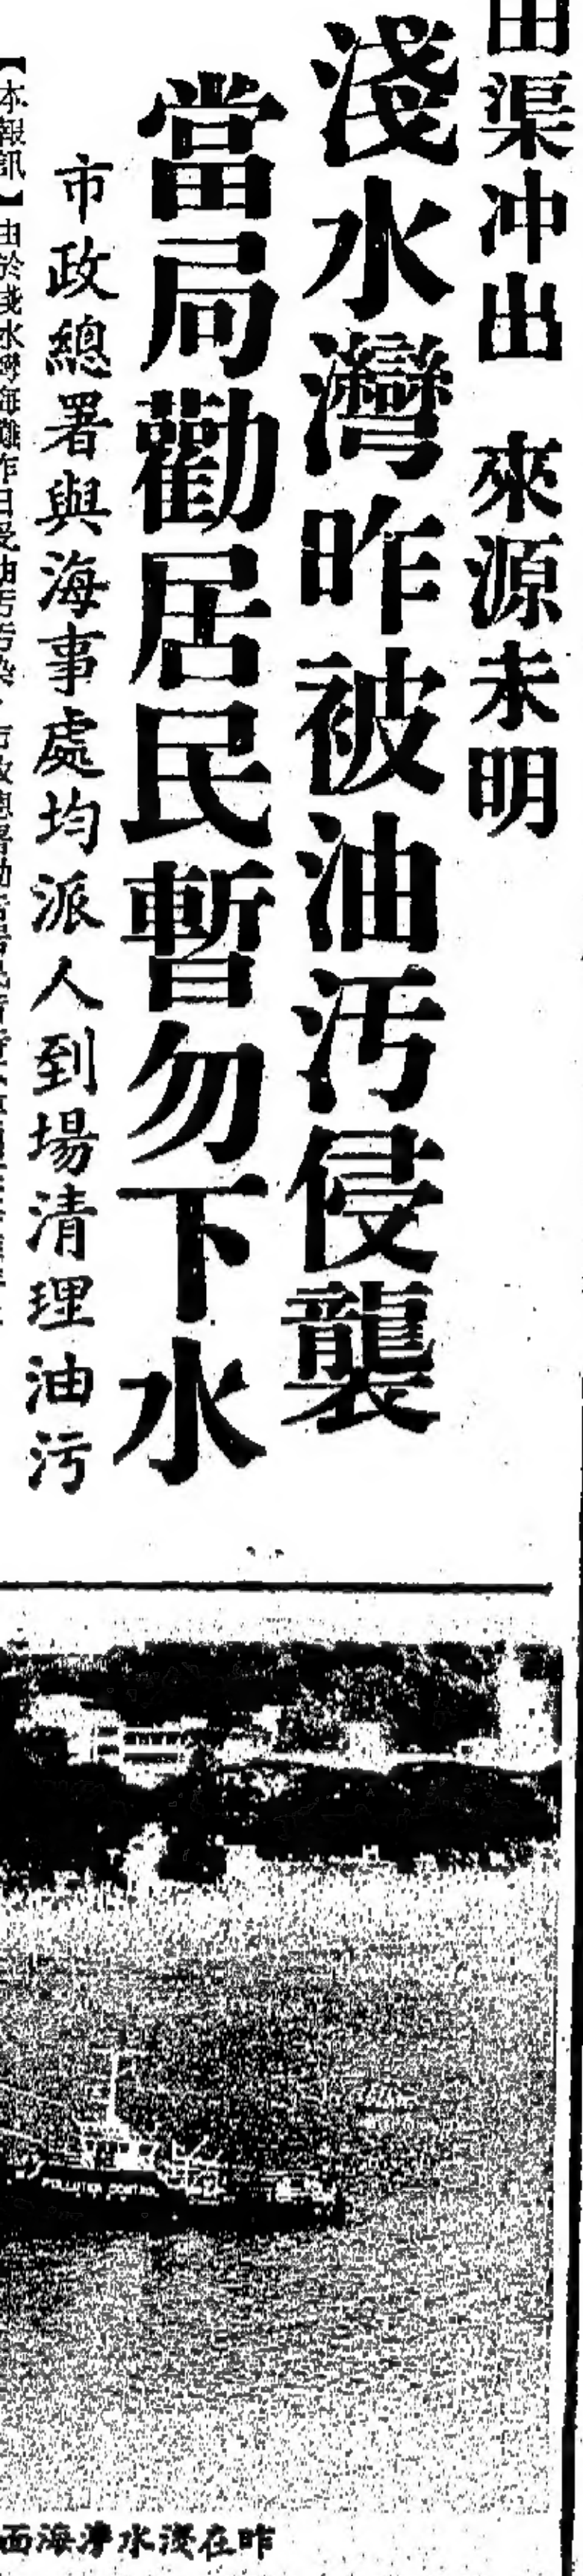 田渠冲出　來源未明
淺水灣昨被油汚侵襲
當局勸居民暫勿下水
市政總署與海事處均派人到場清理油污
【本報訊】由於淺水灣海灘昨日受油污污染，市政總署勸告居民暫
POLLUTION CONTROL
昨在淺水灣海面